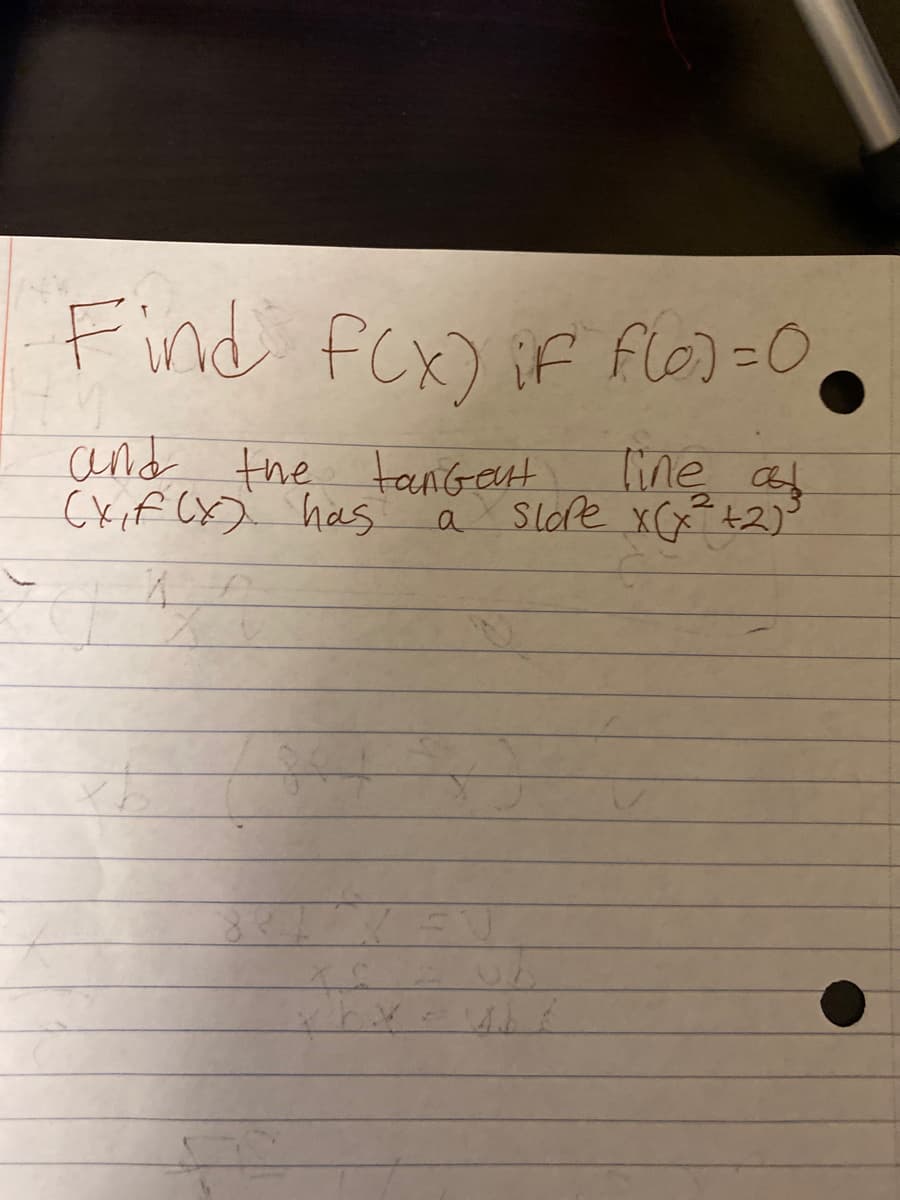 Find f(x) if f(0)=0
and the tangent line at
(x,f(x) has a slope x(x²+2)³